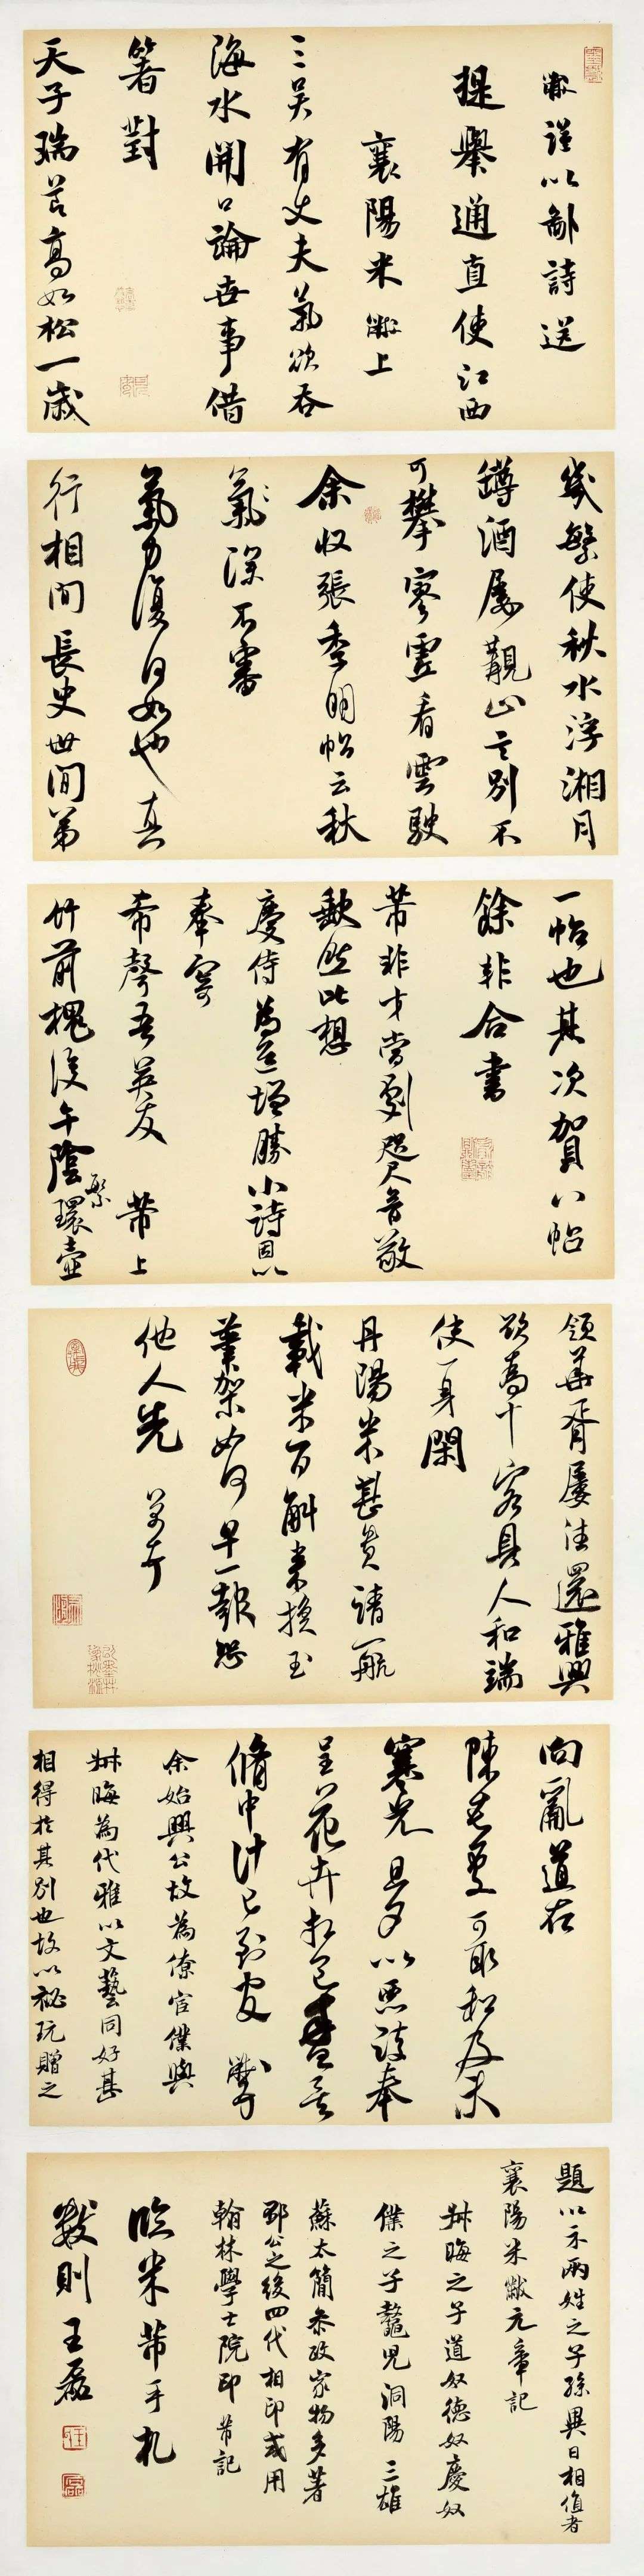 黻謹以鄙詩送
提舉通直使江西
襄陽米黻上
三吳有丈夫氣欲吞
海水開口論世事借
箸對
天子瑞節高如松一歲
幾繁使秋水浮湘月
罇酒屢觀山言別不
可攀寥虛看雲駛
余收張季明帖云秋
氣深不審
氣力復何如也真
行相間長史世間第
一帖也其次賀八帖
餘非合書
芾非才當劇咫尺音敬
歉然比想
慶侍為道增勝小詩因以
奉寄
希聲吾英友 芾上
竹前槐後午陰繁環壺
領華胥屢往還雅興
欲為十客具人和端
使一身閑
丹陽米甚貴請一航
載米百斛來換玉
筆架如何早一報恐
他人先 芾頓首
向亂道在
陳老處可取和及未
寒光旦夕以惡詩奉
呈花卉想已盡
脩中計已到官 黻
余始興公故為僚宦僕與
叔晦為代雅以文藝同好甚
相得於其別也故以秘玩贈之
題以示兩姓之子孫異日相值者
襄陽米黻元章記
叔晦之子道奴德奴慶奴
僕之子鼇兒洞陽三雄
蘇太簡參政家物多著
邳公之後四代相印或用
翰林學士院印 芾記
臨米芾手札
數則 王磊